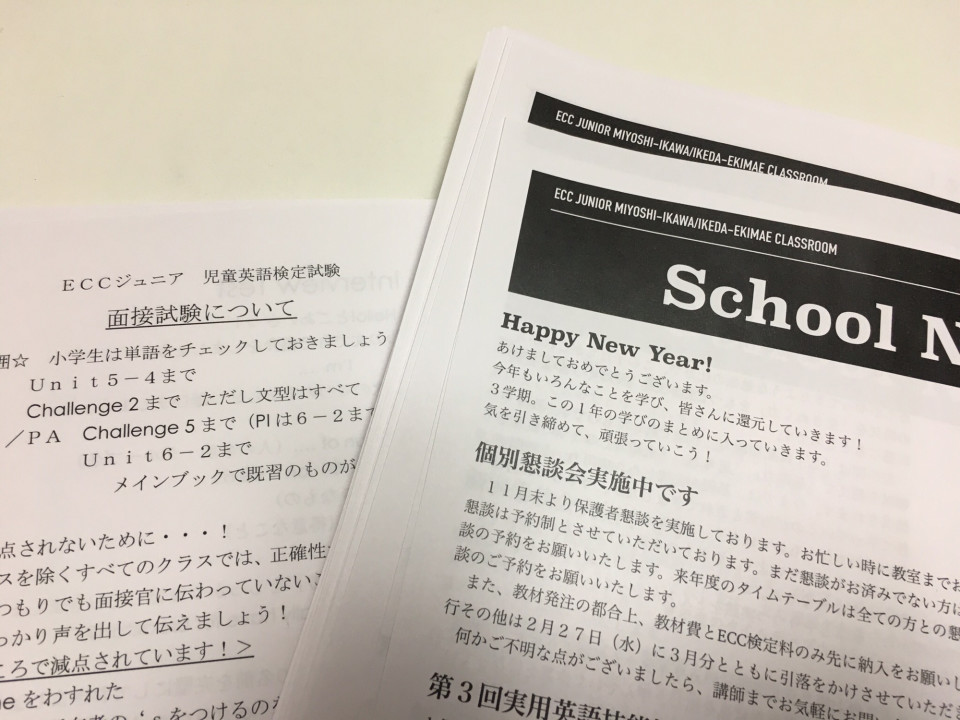 ECCジュニア 児童英語検定試験
面接試験について
囲☆ 小学生は単語をチェックしておきましょう
Unit5-4まで
Challenge 2まで ただし文型はすべて
/PA Challenge 5まで (PIは6-2まで
Unit6-2まで
メインブックで既習のものが
点されないために・・・!
スを除くすべてのクラスでは、正確性
つもりでも面接官に伝わっていない
っかり声を出して伝えましょう!
ころで減点されています!>
をわすれた
の's をつけるのが
ECC JUNIOR MIYOSHI-IKAWA/IKEDA-EKIMAE CLASSROOM
ECC JUNIOR MIYOSHI-IKAWA/IKEDA-EKIMAE CLASSROOM
School N
Happy New Year!
あけましておめでとうございます。
今年もいろんなことを学び、皆さんに還元していきます!
3学期。この1年の学びのまとめに入っていきます。
気を引き締めて、頑張っていこう!
個別懇談会実施中です
11月末より保護者懇談を実施しております。お忙しい時に教室までお
懇談は予約制とさせていただいております。まだ懇談がお済みでない方は
談の予約をお願いいたします。来年度のタイムテーブルは全ての方との懇
談のご予約をお願いいたします。
また、教材発注の都合上、教材費とECC検定料のみ先に納入をお願いし
行その他は2月27日(水)に3月分とともに引落をかけさせていただ
何かご不明な点がございましたら、講師までお気軽にお問
第3回実用英語技能